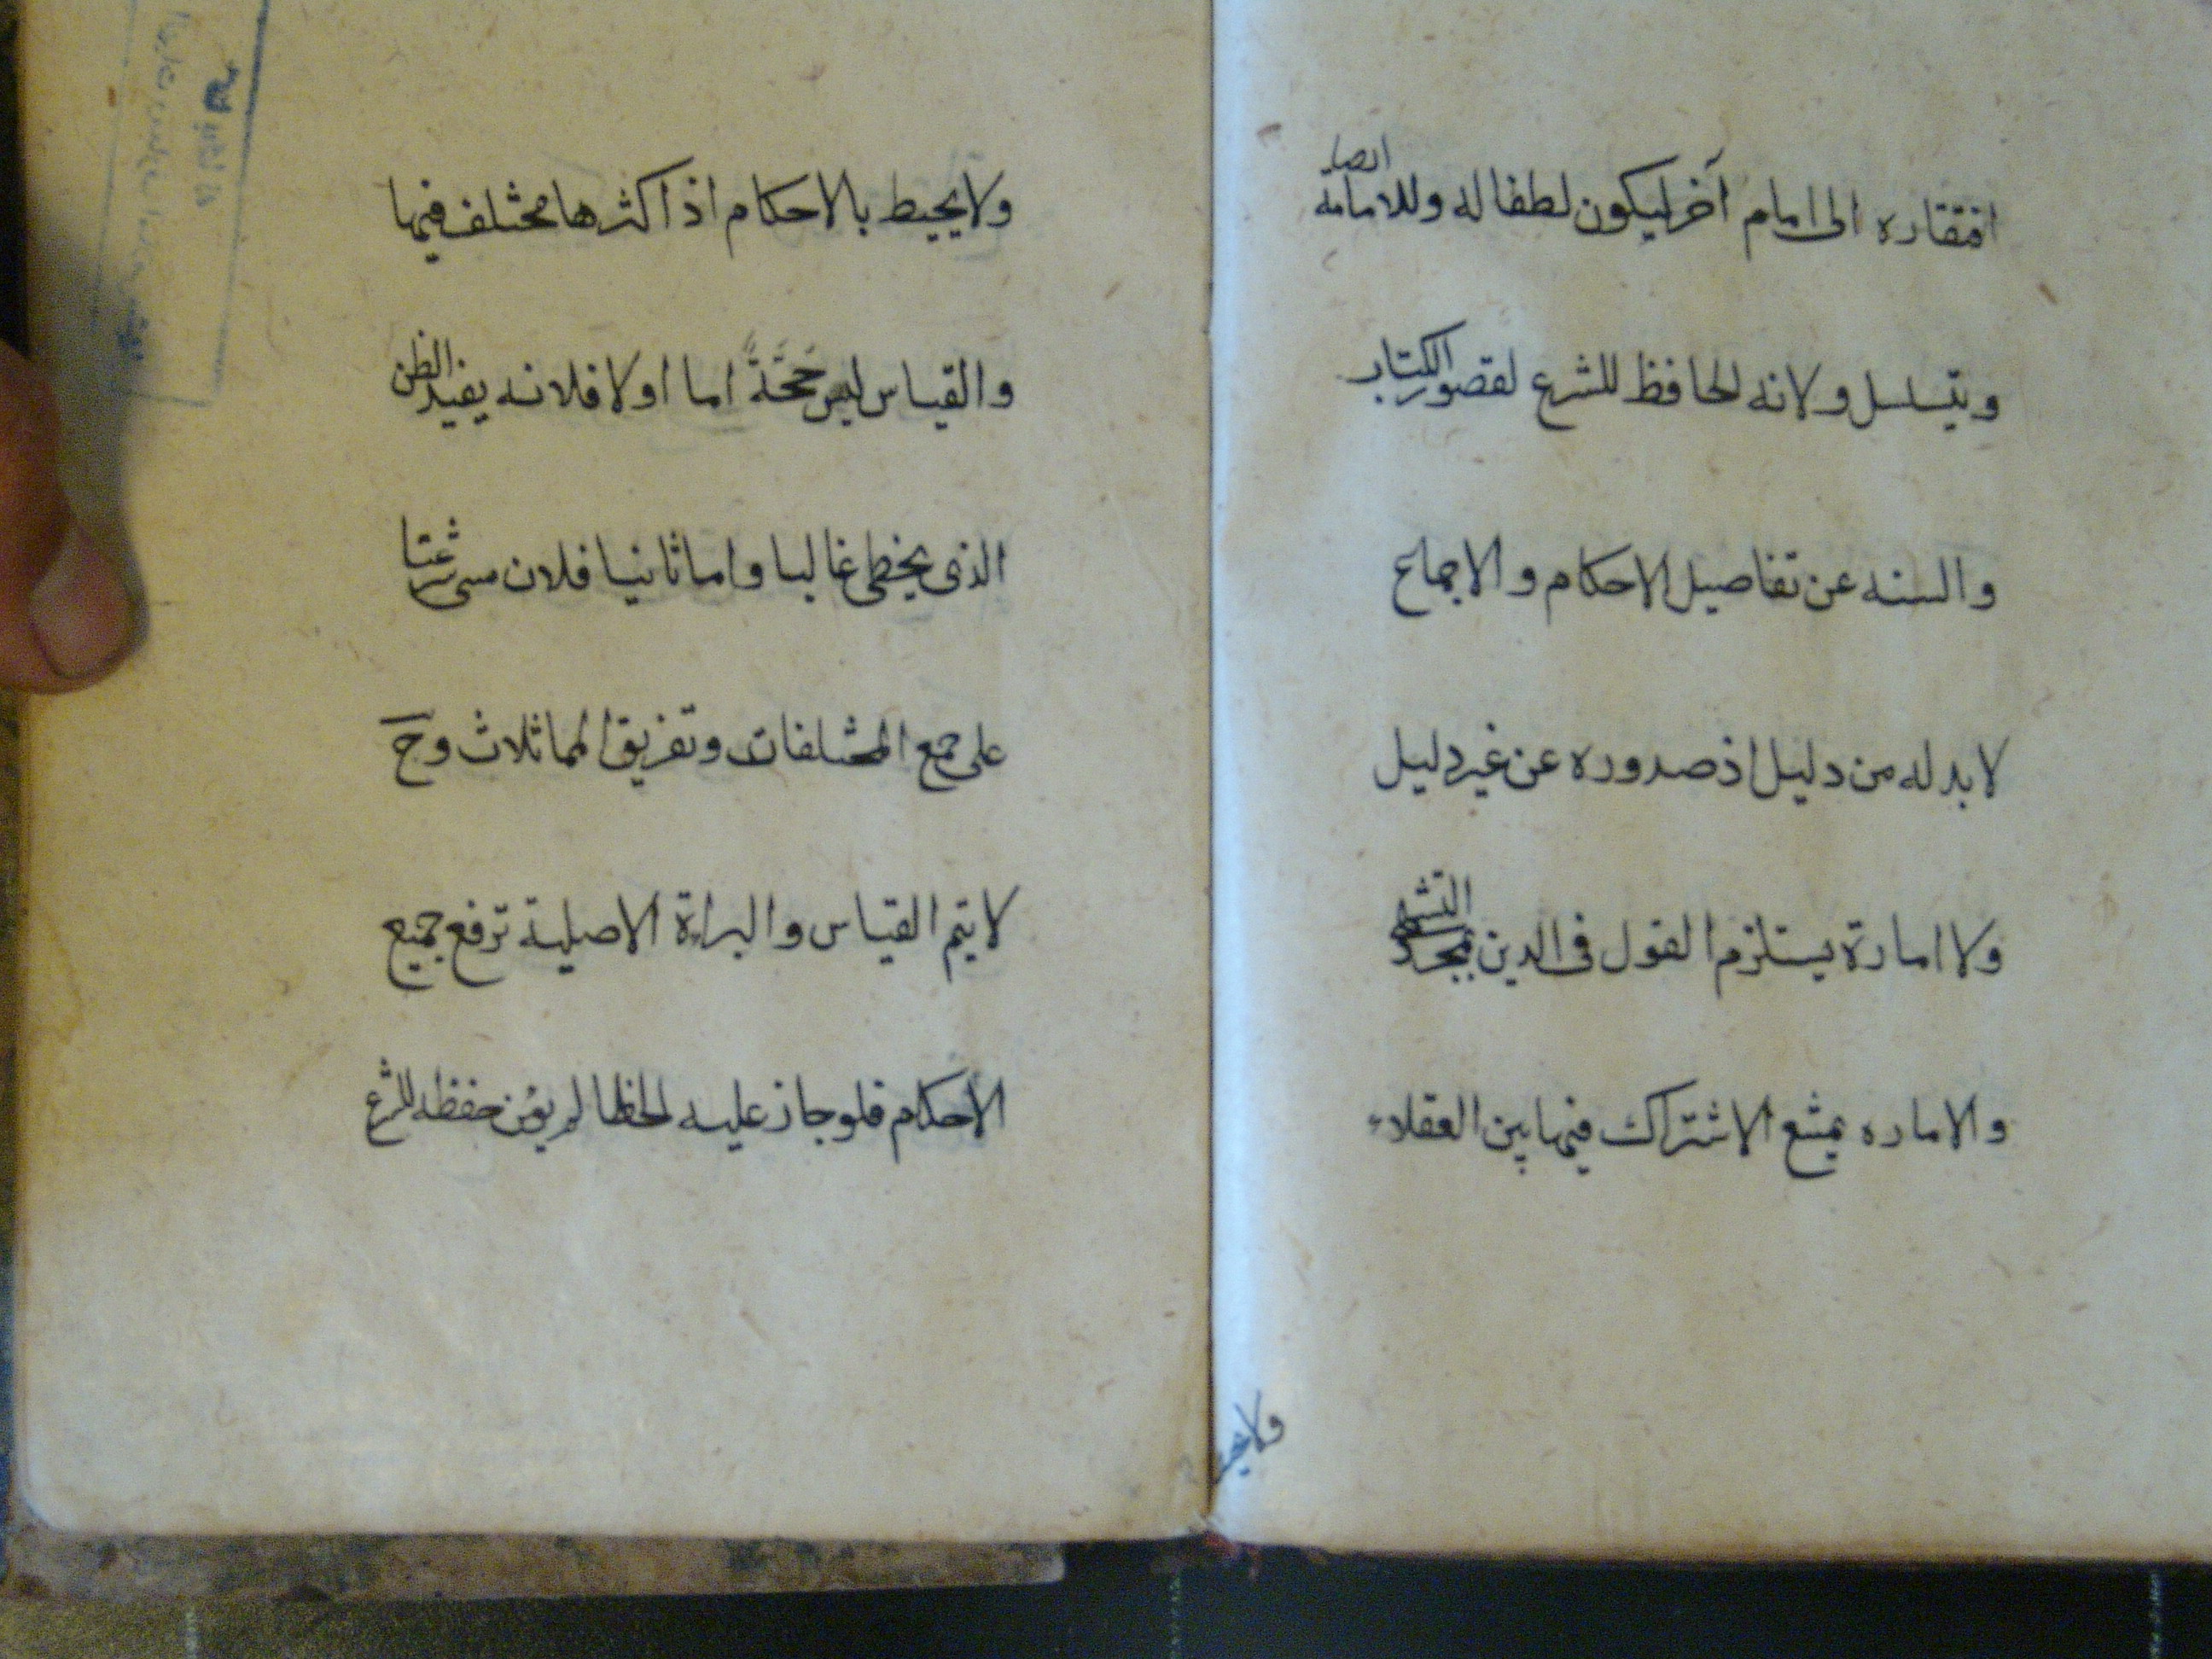 افتقاره الى امام آخر ليكون لطفا له وللامامة ايضا
ويتسلسل ولانه الحافظ للشرع لقصور الكتاب
والسنه عن تفاصيل الاحكام والاجماع
لا بد له من دليل اذ صدوره عن غير دليل
ولا امارة يستلزم القول فى الدين بمجرد التشهى
والاماره يمتنع الاشتراك فيها بين العقلاء
ولا يحيط
ولا يحيط بالاحكام اذ اكثرها مختلف فيها
والقياس ليس حُجَّةً اما اولا فلانه يفيد الظن
الذى يخطى غالبا واما ثانيا فلان مبنى شرعنا
على جمع المختلفات وتفريق المماثلات وح
لا يتم القياس والبراءة الاصلية ترفع جميع
الاحكام فلو جاز عليه الخطا لم يؤمن حفظه للشرع